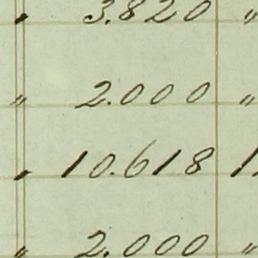 " 3.820 "
" 2.000 "
" 10.618 1
" 2.000 "